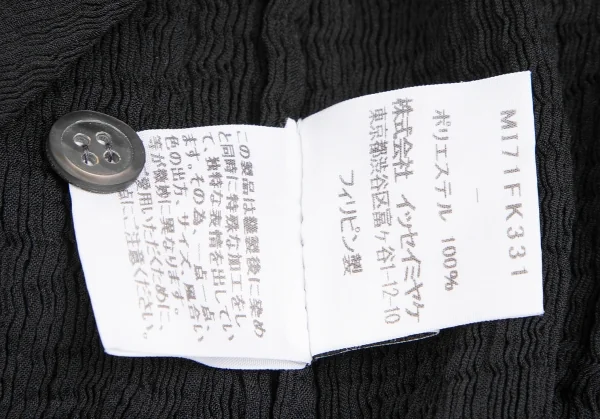 MI71FK331
ポリエステル 100%
株式会社 イッセイミヤケ
東京都渋谷区富ヶ谷1-12-10
フィリピン製
この製品は縫製後に染め
と同時に特殊な加工をし
て、独特な表情を出してい
ます。その為、一点一点、
色の出方、サイズ、風合い
等が微妙に異なります。
愛用いただくために、
点にご注意ください。